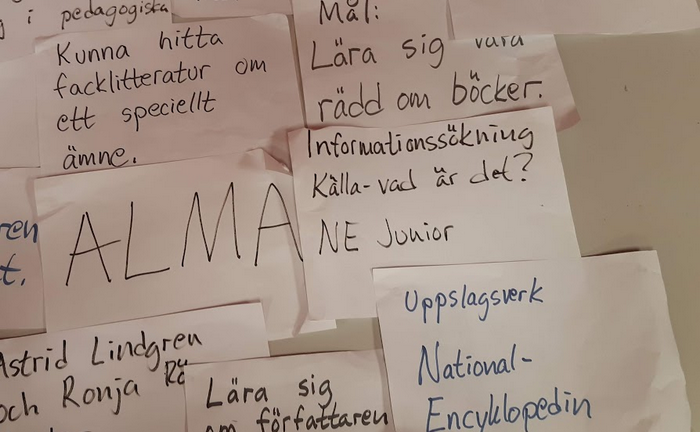 i pedagogiska
Kunna hitta
facklitteratur om
ett speciellt
ämne.
Mål:
Lära sig vara
rädd om böcker.
ALMA
Informationssökning
Källa-vad är det?
NE Junior
t.
Uppslagsverk
National-
Encyklopedin
Astrid Lindgren
och Ronja
Lära sig
om författaren